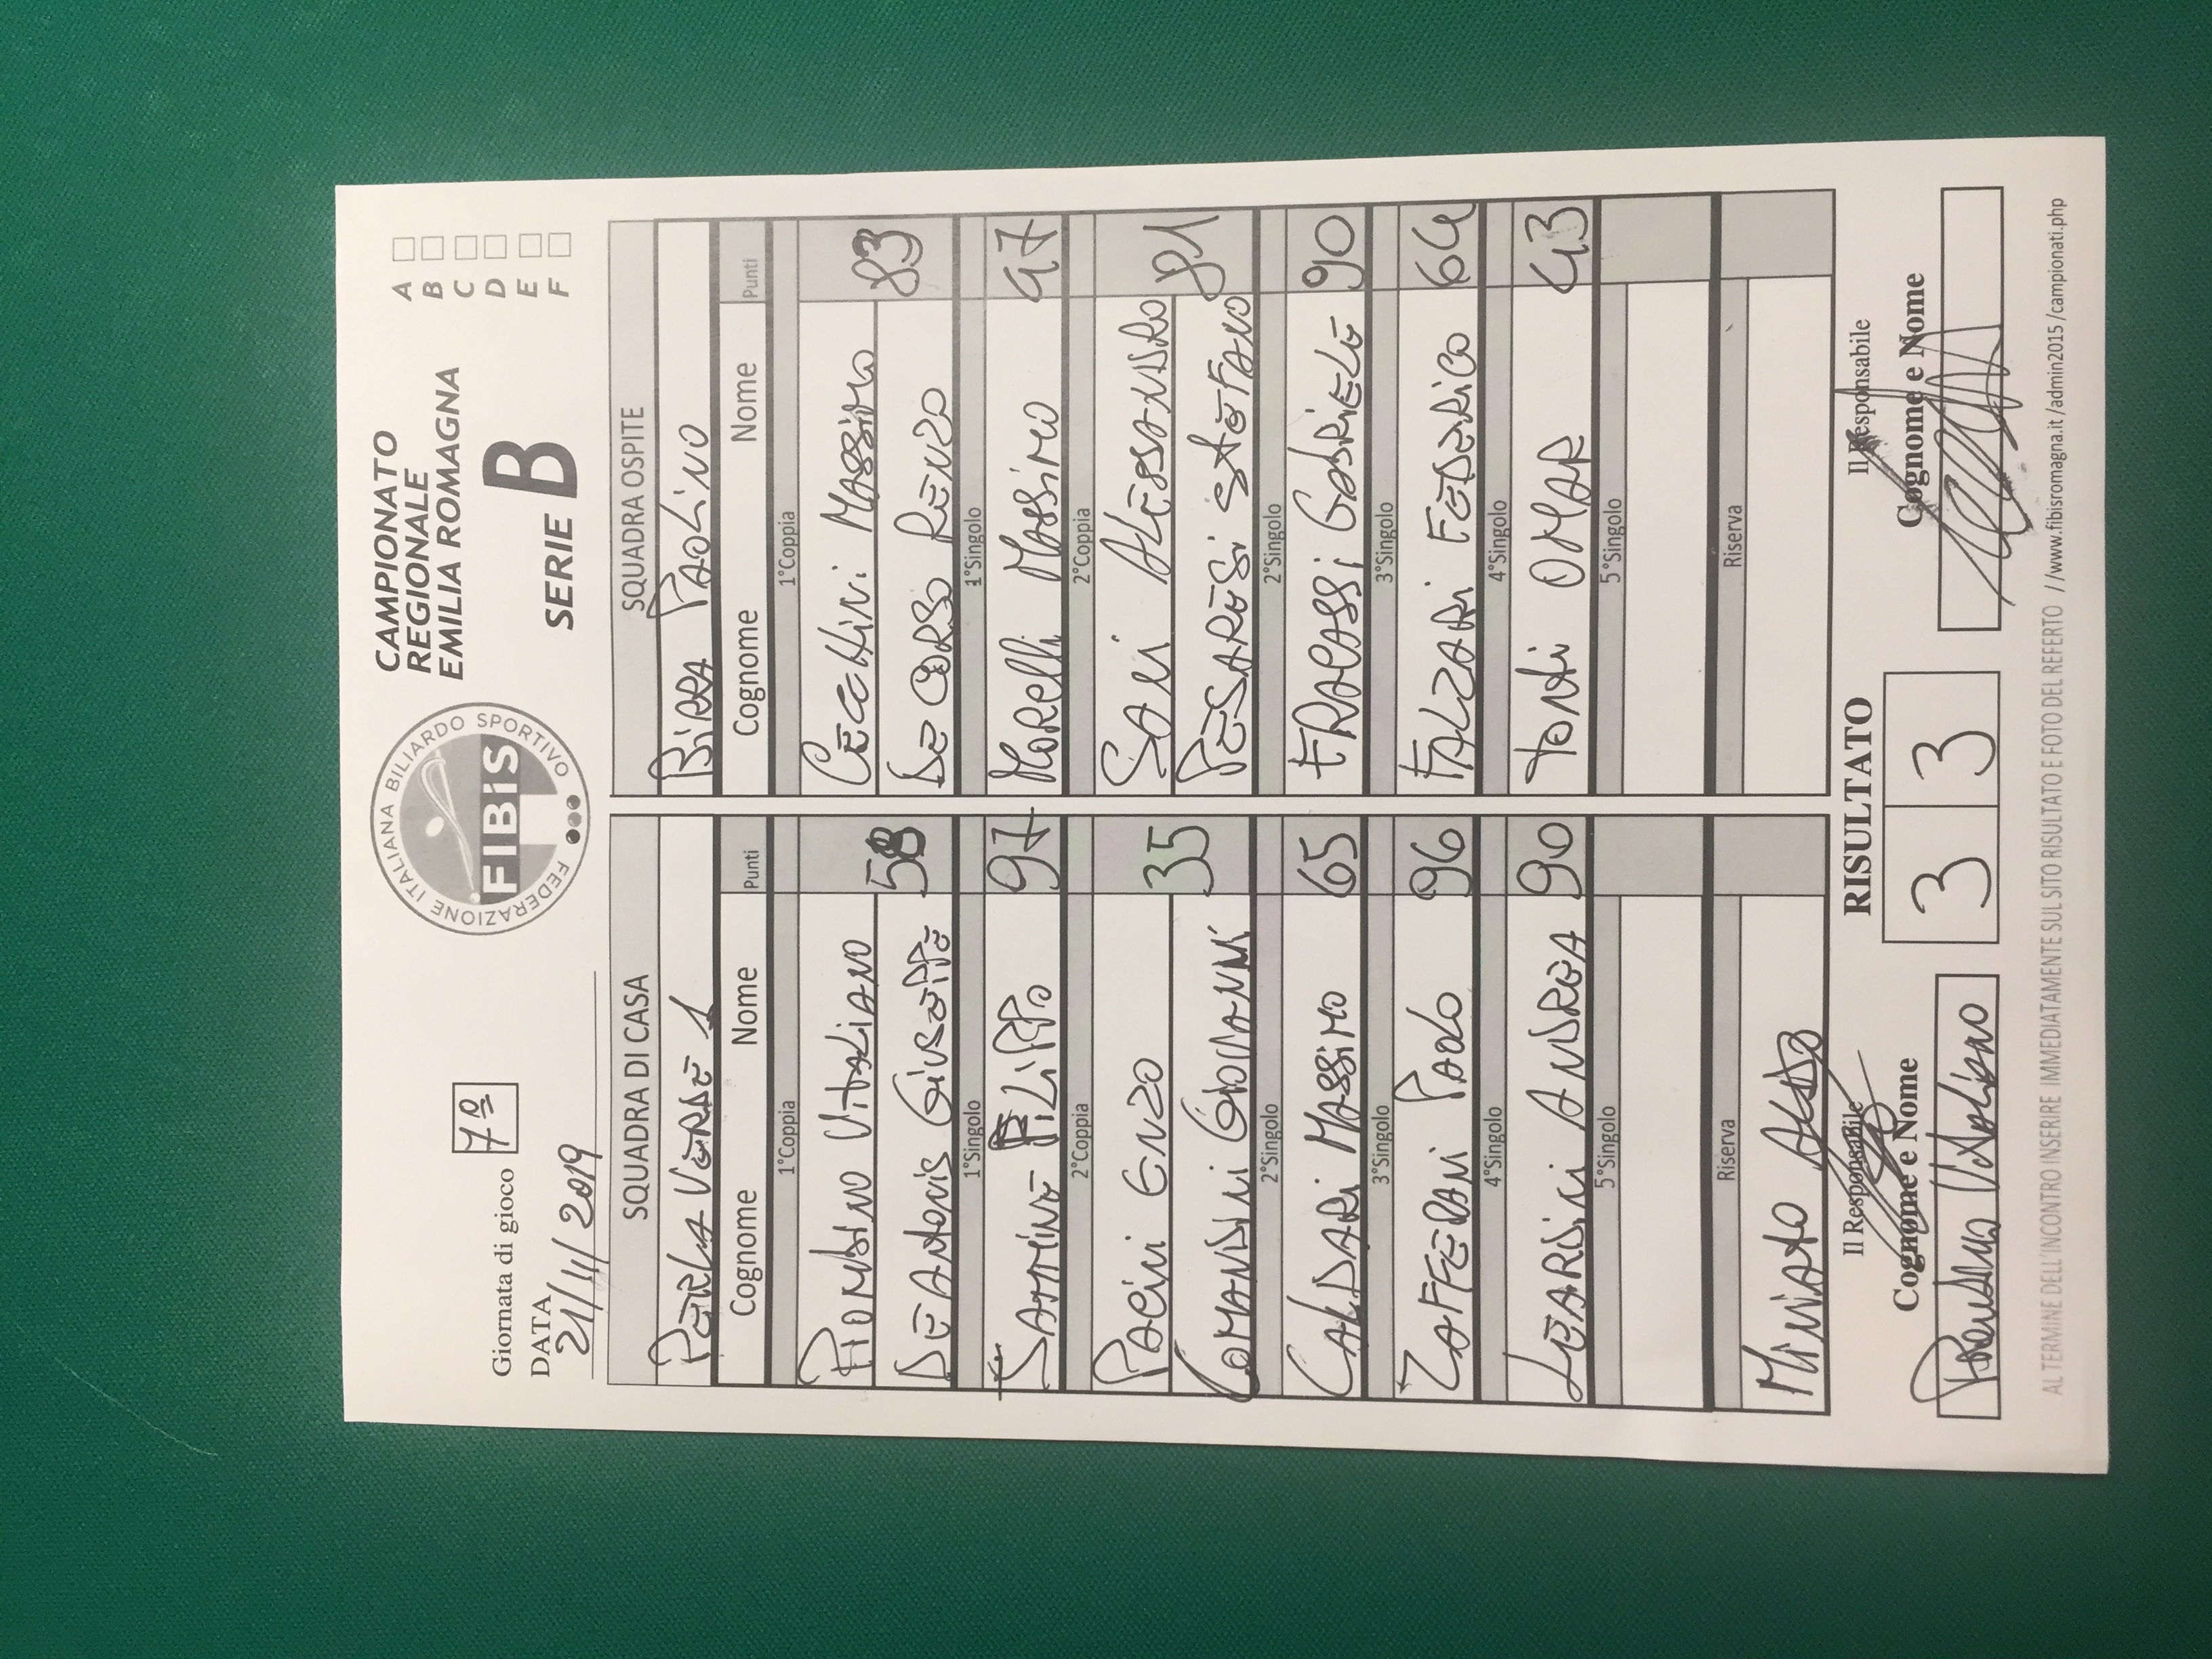 Giornata di gioco 7ª
DATA
21/11/2019
FEDERAZIONE ITALIANA BILIARDO SPORTIVO
FIBiS
CAMPIONATO
REGIONALE
EMILIA ROMAGNA
SERIE B
A
B
C
D
E
F
SQUADRA DI CASA
PERLA VERDE 1
Cognome Nome Punti
1°Coppia
PIOMBINO VITALIANO
DE ANTONIS GIUSEPPE 58
1°Singolo
FILIPPO 97
2°Coppia
PACINI ENZO
COMANDINI GIOVANNI 35
2°Singolo
CALDARI MASSIMO 65
3°Singolo
ZAFFERANI PAOLO 96
4°Singolo
LEARDINI ANDREA 90
5°Singolo
Riserva
MINIATO ALDO
SQUADRA OSPITE
BIRRA PAOLINO
Cognome Nome Punti
1°Coppia
CECCHINI MASSIMO
DE CORSO RENZO 83
1°Singolo
MORELLI MASSIMO 47
2°Coppia
SALI ALESSANDRO
PESARESI STEFANO 81
2°Singolo
FRACASSI GABRIELE 90
3°Singolo
FALZARI FEDERICO 64
4°Singolo
TONTI OMAR 43
5°Singolo
Riserva
Il Responsabile
Cognome e Nome
Vitaliano
RISULTATO
3 3
Il Responsabile
Cognome e Nome
AL TERMINE DELL'INCONTRO INSERIRE IMMEDIATAMENTE SUL SITO RISULTATO E FOTO DEL REFERTO //www.fibisromagna.it/admin2015/campionati.php